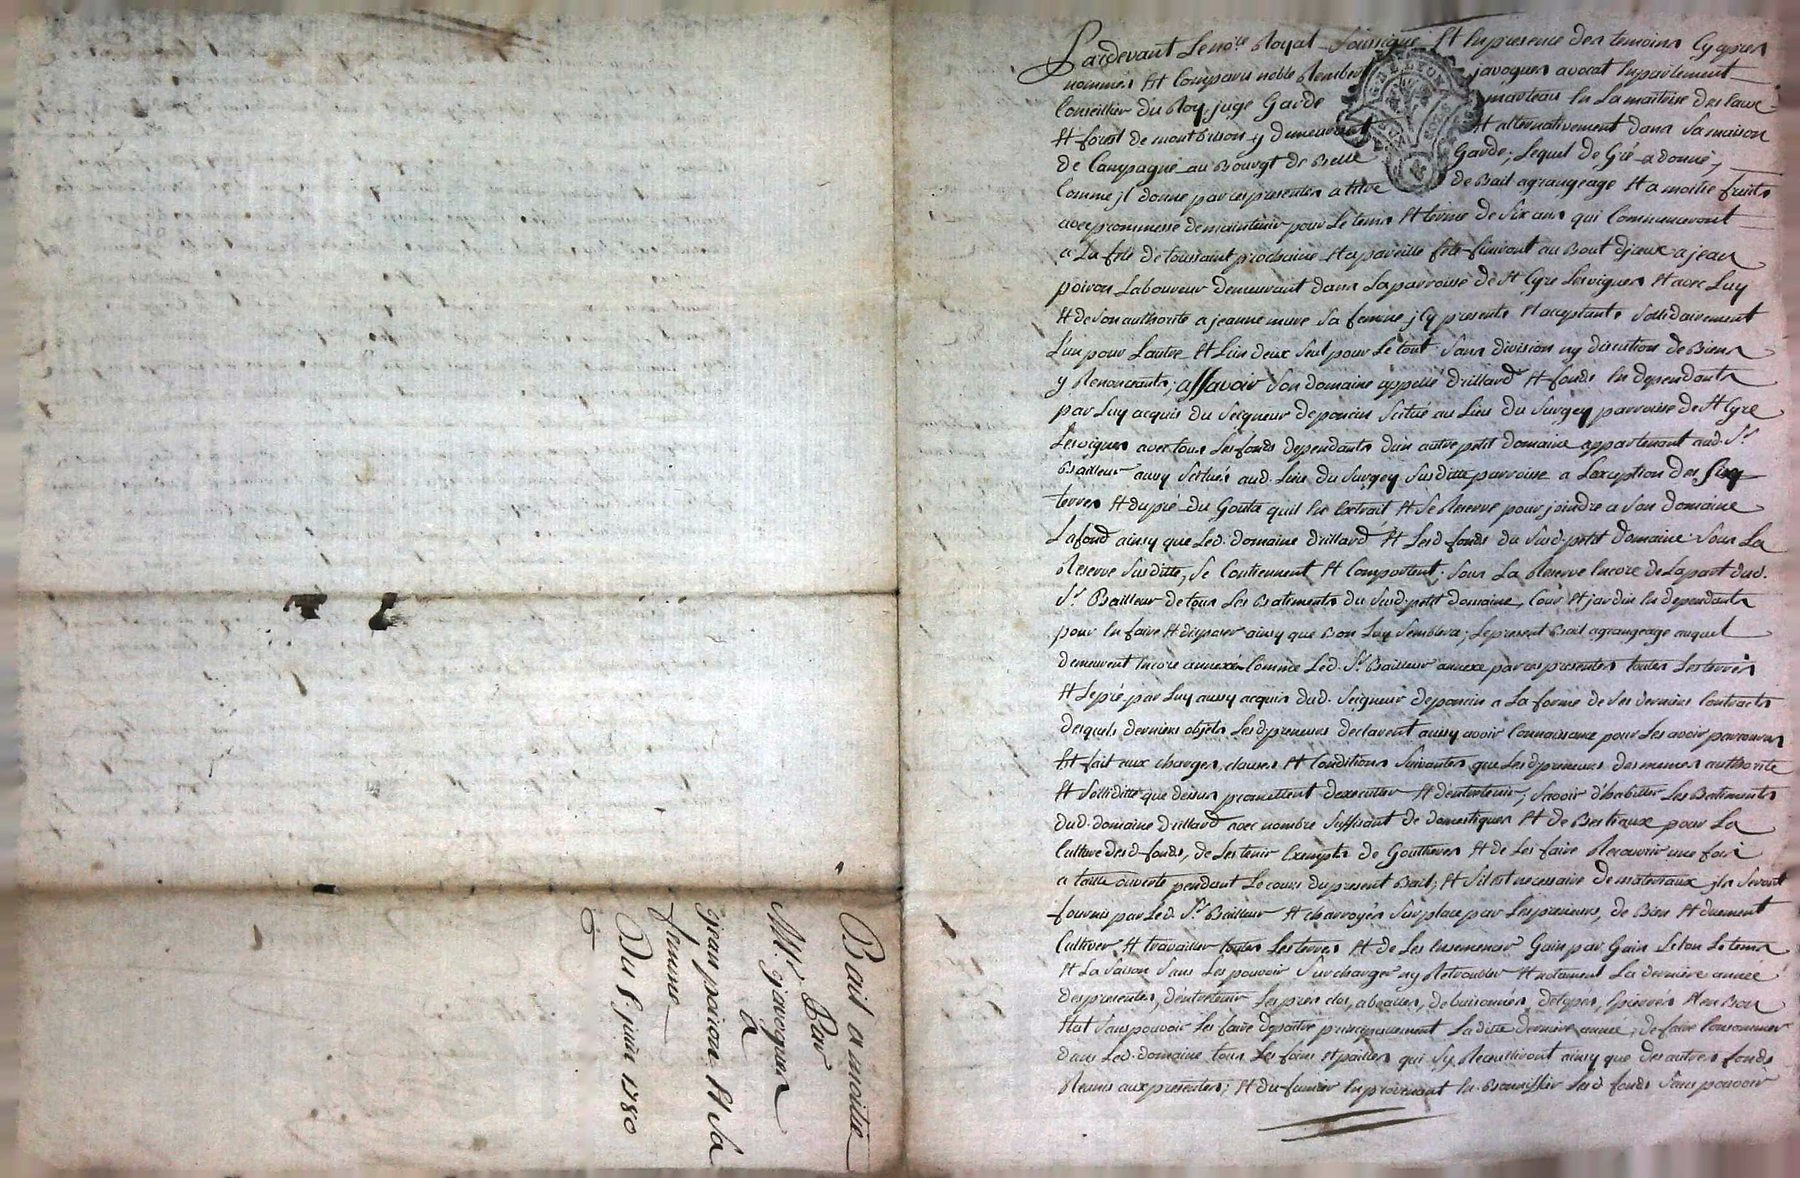 Bail a moitié
Par
Mr. javogues
a
jean poiron Et sa
femme
Du 8 juin 1780
Pardevant Le nore Royal Soussigné Et En presence des temoins Cy apres
nommés Est Comparu noble Rembert javogues avocat En parlement
Conseiller du Roy, juge Garde marteau En La maitrise des Eaux
Et forest de montbrison y demeurant Et alternativement dans Sa maison
de Campagne au Bourgt de Belle Garde; Lequel de Gré a donné,
Comme jl donne par ces presentes a titre de Bail agrangeage Et a moitié fruits
avec promesse de maintenir pour Le tems Et terme de Six ans qui Commenceront
a La fete de toussaint prochaine Et a pareille fete finiront au Bout d'jceux a jean
poiron Laboureur demeurant dans La parroisse de St Cyre Lesvignes Et avec Luy
Et de Son authorité a jeanne mure Sa femme jCy presents Et acceptants Sollidairement
L'un pour Lautre Et L'un deux Seul pour Le tout Sans division ny discution de Biens
y Renonceants, assavoir Son domaine appellé drillard Et fonds En dependants
par Luy acquis du Seigneur de poncins Scitué au Lieu du Surgey parroisse de St Cyre
Lesvignes avec tous Les fonds dependants d'un autre petit domaine appartenant aud. Sr
Bailleur aussy Scitués aud. Lieu du Surgey Susditte parroisse a Lexception des Cinq
terres Et du pré du Goutta quil En Extrait Et Se Reserve pour joindre a Son domaine
Lafond ainsy que Led. domaine drillard Et Lesd. fonds du Susd. petit domaine Sous La
Reserve Susditte, Se Contiennent Et Comportent. Sous La Reserve Encore de La part dud.
Sr Bailleur de tous Les Batiments du Susd. petit domaine, Cour Et jardin En dependants
pour En faire Et disposer ainsy que Bon Luy Semblera; Le present Bail agrangeage auquel
demeurent Encore annexés Comme Led. Sr Bailleur annexe par ces presentes toutes Les terres
Et Le pré par Luy aussy acquis dud. Seigneur de poncins a La forme de Ses derniers Contracts
desquels derniers objets Lesd. preneurs declarent aussy avoir Connaissance pour Les avoir parcourus
Est fait aux charges, clauses Et Conditions Suivantes que Lesd. preneurs des memes authorité
Et Solliditté que dessus promettent d'executter Et d'entretenir; Savoir d'habitter Les Batiments
dud. domaine drillard avec nombre Suffisant de domestiques Et de Bestiaux pour La
Culture desd. fonds, de Les tenir Exempts de Goutheres Et de Les faire Recouvrir une fois
a taille ouverte pendant Le cours du present Bail; Et S'il est necessaire de materiaux jls Seront
fournis par Led. Sr Bailleur Et charroyés Sur place par Les preneurs, de Bien Et duement
Cultiver Et travailler toutes Les terres Et de Les Ensemencer Gain par Gain Selon Le tems
Et La Saison Sans Les pouvoir Surcharger ny Retroubler Et notament La derniere année
des presentes, d'entretenir Les prés clos, abreuvés, debuissonnés, detopés, Epierrés Et en Bon
Etat Sans pouvoir Les faire depaitre principalement La ditte derniere année, de faire Consommer
dans Led. domaine tous Les foins Et pailles qui S'y Receuilliront ainsy que des autres fonds
Reunis aux presentes; Et du fumier En provenant En Bonniffier Lesd. fonds Sans pouvoir